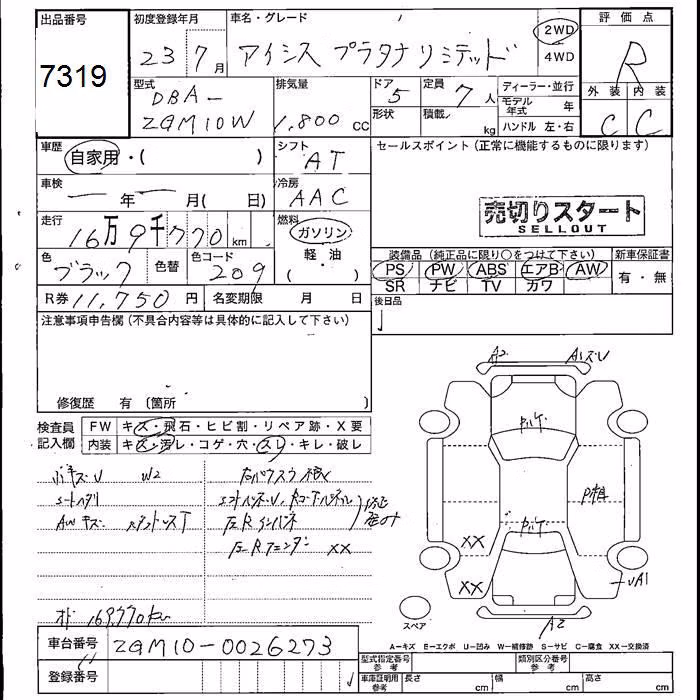 出品番号 初度登録年月 車名・グレード 評価点
7319 23 7月 アイシス プラタナリミテッド 2WD 4WD R
型式 排気量 ドア 定員 ディーラー・並行 外装 内装
DBA- 5 7人 モデル年式 年 C C
ZGM10W 1,800 cc 形状 積載 kg ハンドル 左・右
車歴 自家用・( ) シフト AT セールスポイント (正常に機能するものに限ります)
車検 年 月( 日) 冷房 AAC
売切りスタート
SELLOUT
走行 16万9千770km 燃料 ガソリン
軽・油
( )
色 ブラック 色替 色コード 209
装備品 (純正品に限り○をつけて下さい) 新車保証書
PS PW ABS エアB AW 有・無
SR ナビ TV カワ
R券 11,750円 名変期限 月 日 後日品
注意事項申告欄 (不具合内容等は具体的に記入して下さい)
修復歴 有 (箇所 )
検査員記入欄
FW キズ・飛石・ヒビ割・リペア跡・X要
内装 キズ・汚レ・コゲ・穴・スレ・キレ・破レ
W2
シートヘタリ
AWキズ
左Rインパネ
左Rフェンダー XX
169,770km
A2 A1
XX
XX
A2
スペア
A-キズ E-エクボ U-凹み W-補修跡 S-サビ C-腐食 XX-交換済
車台番号 ZGM10-0026273
登録番号
型式指定番号 参考 類別区分番号 参考
車庫証明用 参考 長さ cm 幅 cm 高さ cm